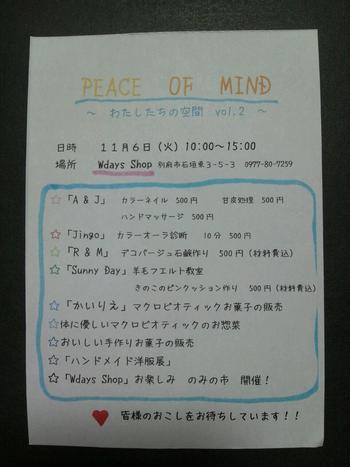 PEACE OF MIND
～ わたしたちの空間 vol.2 ～
日時 11月6日(火) 10:00～15:00
場所 Wdays Shop 別府市石垣東3-5-3 0977-80-7259
☆「A & J」 カラーネイル 500円 甘皮処理 500円
ハンドマッサージ 500円
☆「Jingo」 カラーオーラ診断 10分 500円
☆「R & M」 デコパージュ石鹸作り 500円(材料費込)
☆「Sunny Day」羊毛フエルト教室
きのこのピンクッション作り 500円(材料費込)
☆「かいりえ」マクロビオティックお菓子の販売
☆体に優しいマクロビオティックのお惣菜
☆おいしい手作りお菓子の販売
☆「ハンドメイド洋服展」
☆「Wdays Shop」お楽しみ のみの市 開催!
♥ 皆様のおこしをお待ちしています!!